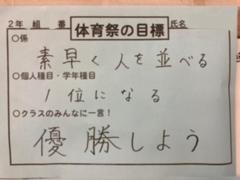 2年 組 番 体育祭の目標 氏名
○係
素早く人を並べる
○個人種目・学年種目
1位になる
○クラスのみんなに一言!
優勝しよう